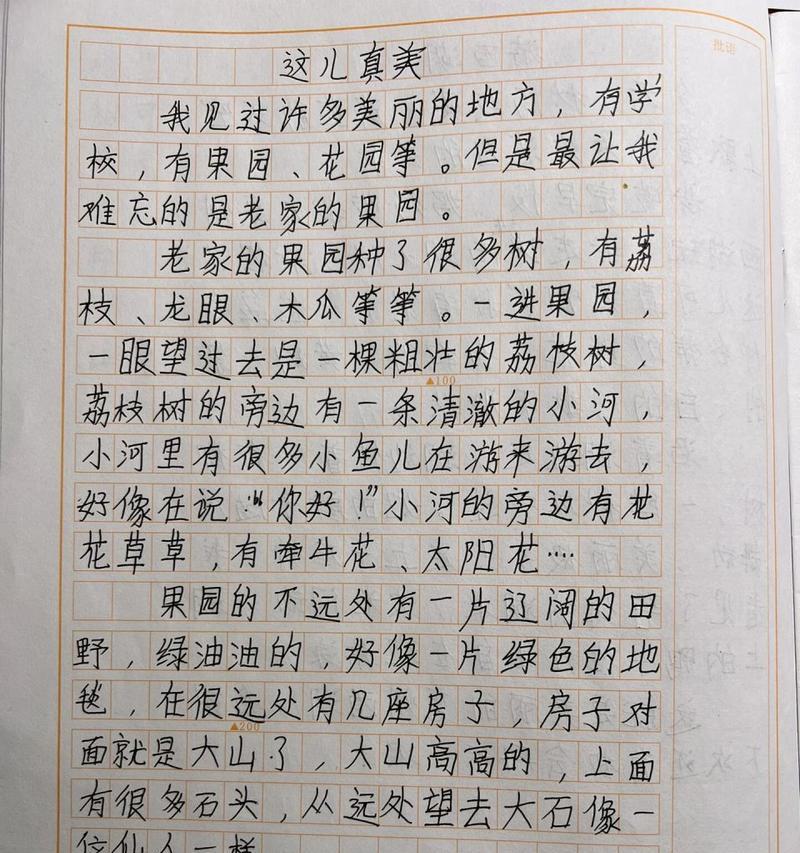 批语
这儿真美
我见过许多美丽的地方，有学
校，有果园、花园等。但是最让我
难忘的是老家的果园。
老家的果园种了很多树，有荔
枝、龙眼、木瓜等等。一进果园，
一眼望过去是一棵粗壮的荔枝树，
▲100
荔枝树的旁边有一条清澈的小河，
小河里有很多小鱼儿在游来游去，
好像在说：“你好！”小河的旁边有花
花草草，有牵牛花、太阳花……
果园的不远处有一片辽阔的田
野，绿油油的，好像一片绿色的地
毯，在很远处有几座房子，房子对
▲200
面就是大山了，大山高高的，上面
有很多石头，从远处望去大石像一
位仙人一样